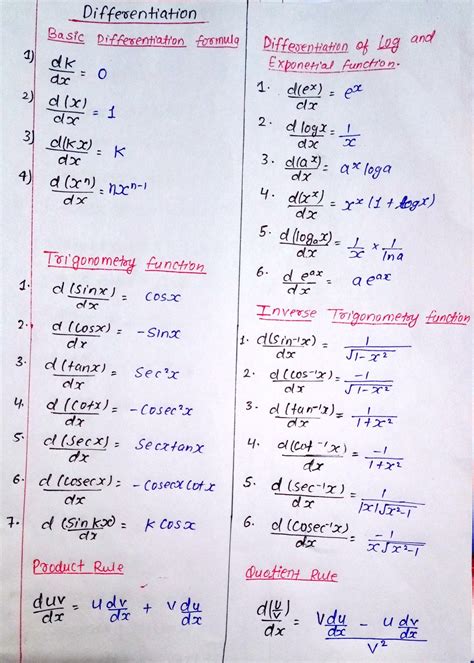 Differentiation
Basic Differentiation formula
1) dk/dx = 0
2) d(x)/dx = 1
3) d(kx)/dx = K
4) d(xⁿ)/dx = nxⁿ⁻¹
Trigonometry function
1. d(sinx)/dx = cosx
2. d(cosx)/dx = -Sinx
3. d(tanx)/dx = Sec²x
4. d(cotx)/dx = -Cosec²x
5. d(secx)/dx = Secxtanx
6. d(cosecx)/dx = -CosecxCotx
7. d(Sinkx)/dx = K Cosx
Product Rule
duv/dx = u dv/dx + v du/dx
Differentiation of Log and
Exponetial function.
1. d(eˣ)/dx = eˣ
2. d logx/dx = 1/x
3. d(aˣ)/dx = aˣ loga
4. d(xˣ)/dx = xˣ (1 + logx)
5. d(logₐx)/dx = 1/x × 1/lna
6. d eᵃˣ/dx = a eᵃˣ
Inverse Trigonometry function
1. d(sin⁻¹x)/dx = 1/√1-x²
2. d(cos⁻¹x)/dx = -1/√1-x²
3. d(tan⁻¹x)/dx = 1/1+x²
4. d(cot⁻¹x)/dx = -1/1+x²
5. d(sec⁻¹x)/dx = 1/|x|√x²-1
6. d(cosec⁻¹x)/dx = -1/x√x²-1
Quotient Rule
d(u/v)/dx = v du/dx - u dv/dx / v²